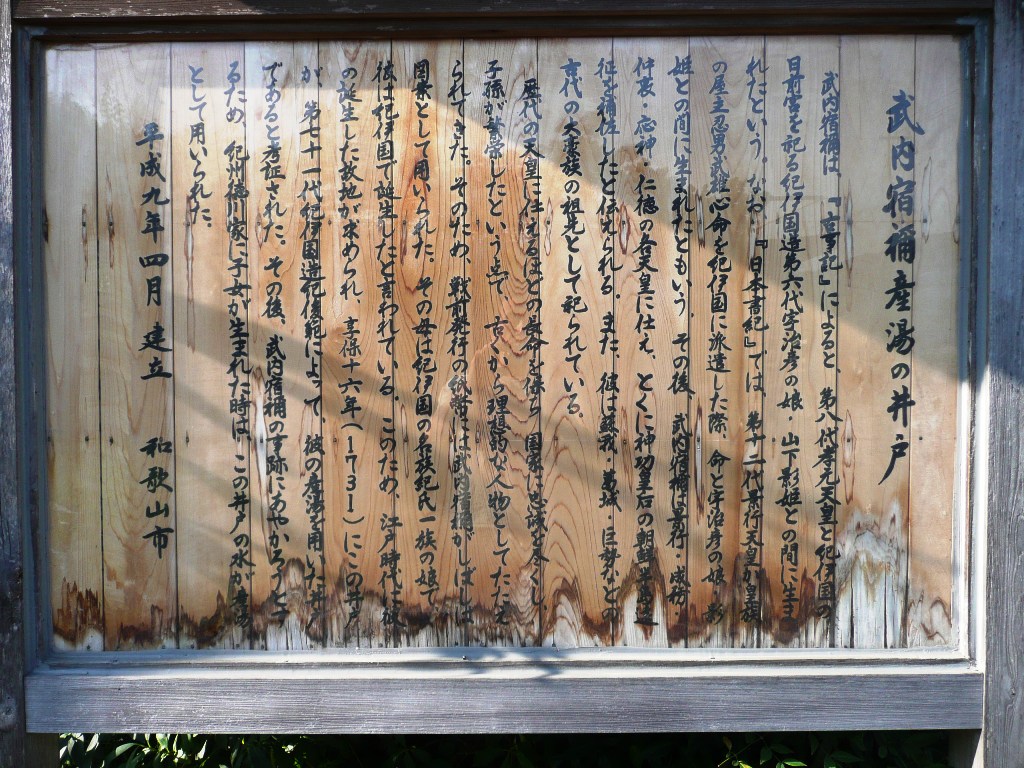 武内宿禰産湯の井戸
武内宿禰は、『古事記』によると、第八代孝元天皇と紀伊国の
日前宮を祀る紀伊国造第六代宇治彦の娘・山下影姫との間に生ま
れたという。なお、『日本書紀』では、第十二代景行天皇が皇族
の屋主忍男武雄心命を紀伊国に派遣した際、命と宇治彦の娘・影
姫との間に生まれたともいう。その後、武内宿禰は景行・成務・
仲哀・応神・仁徳の各天皇に仕え、とくに神功皇后の朝鮮半島遠
征を補佐したと伝えられる。また、彼は蘇我・葛城・巨勢などの
古代の大豪族の祖先として祀られている。
歴代の天皇に仕えるほどの長命を保ち、国家に忠誠を尽くし、
子孫が繁栄したという事で、古くから理想的な人物としてたたえ
られてきた。そのため、戦前発行の紙幣には武内宿禰がしばしば
図案として用いられた。その母は紀伊国の名族紀氏一族の娘で
彼は紀伊国で誕生したと言われている。このため、江戸時代に彼
の誕生した故地が求められ、享保十六年（１７３１）にこの井戸
が、第七十一代紀伊国造紀俊範によって、彼の産湯を用いた井戸
であると考証された。その後、武内宿禰の事跡にあやかろうとす
るため、紀州徳川家に子女が生まれた時は、この井戸の水が産湯
として用いられた。
平成九年四月建立　和歌山市